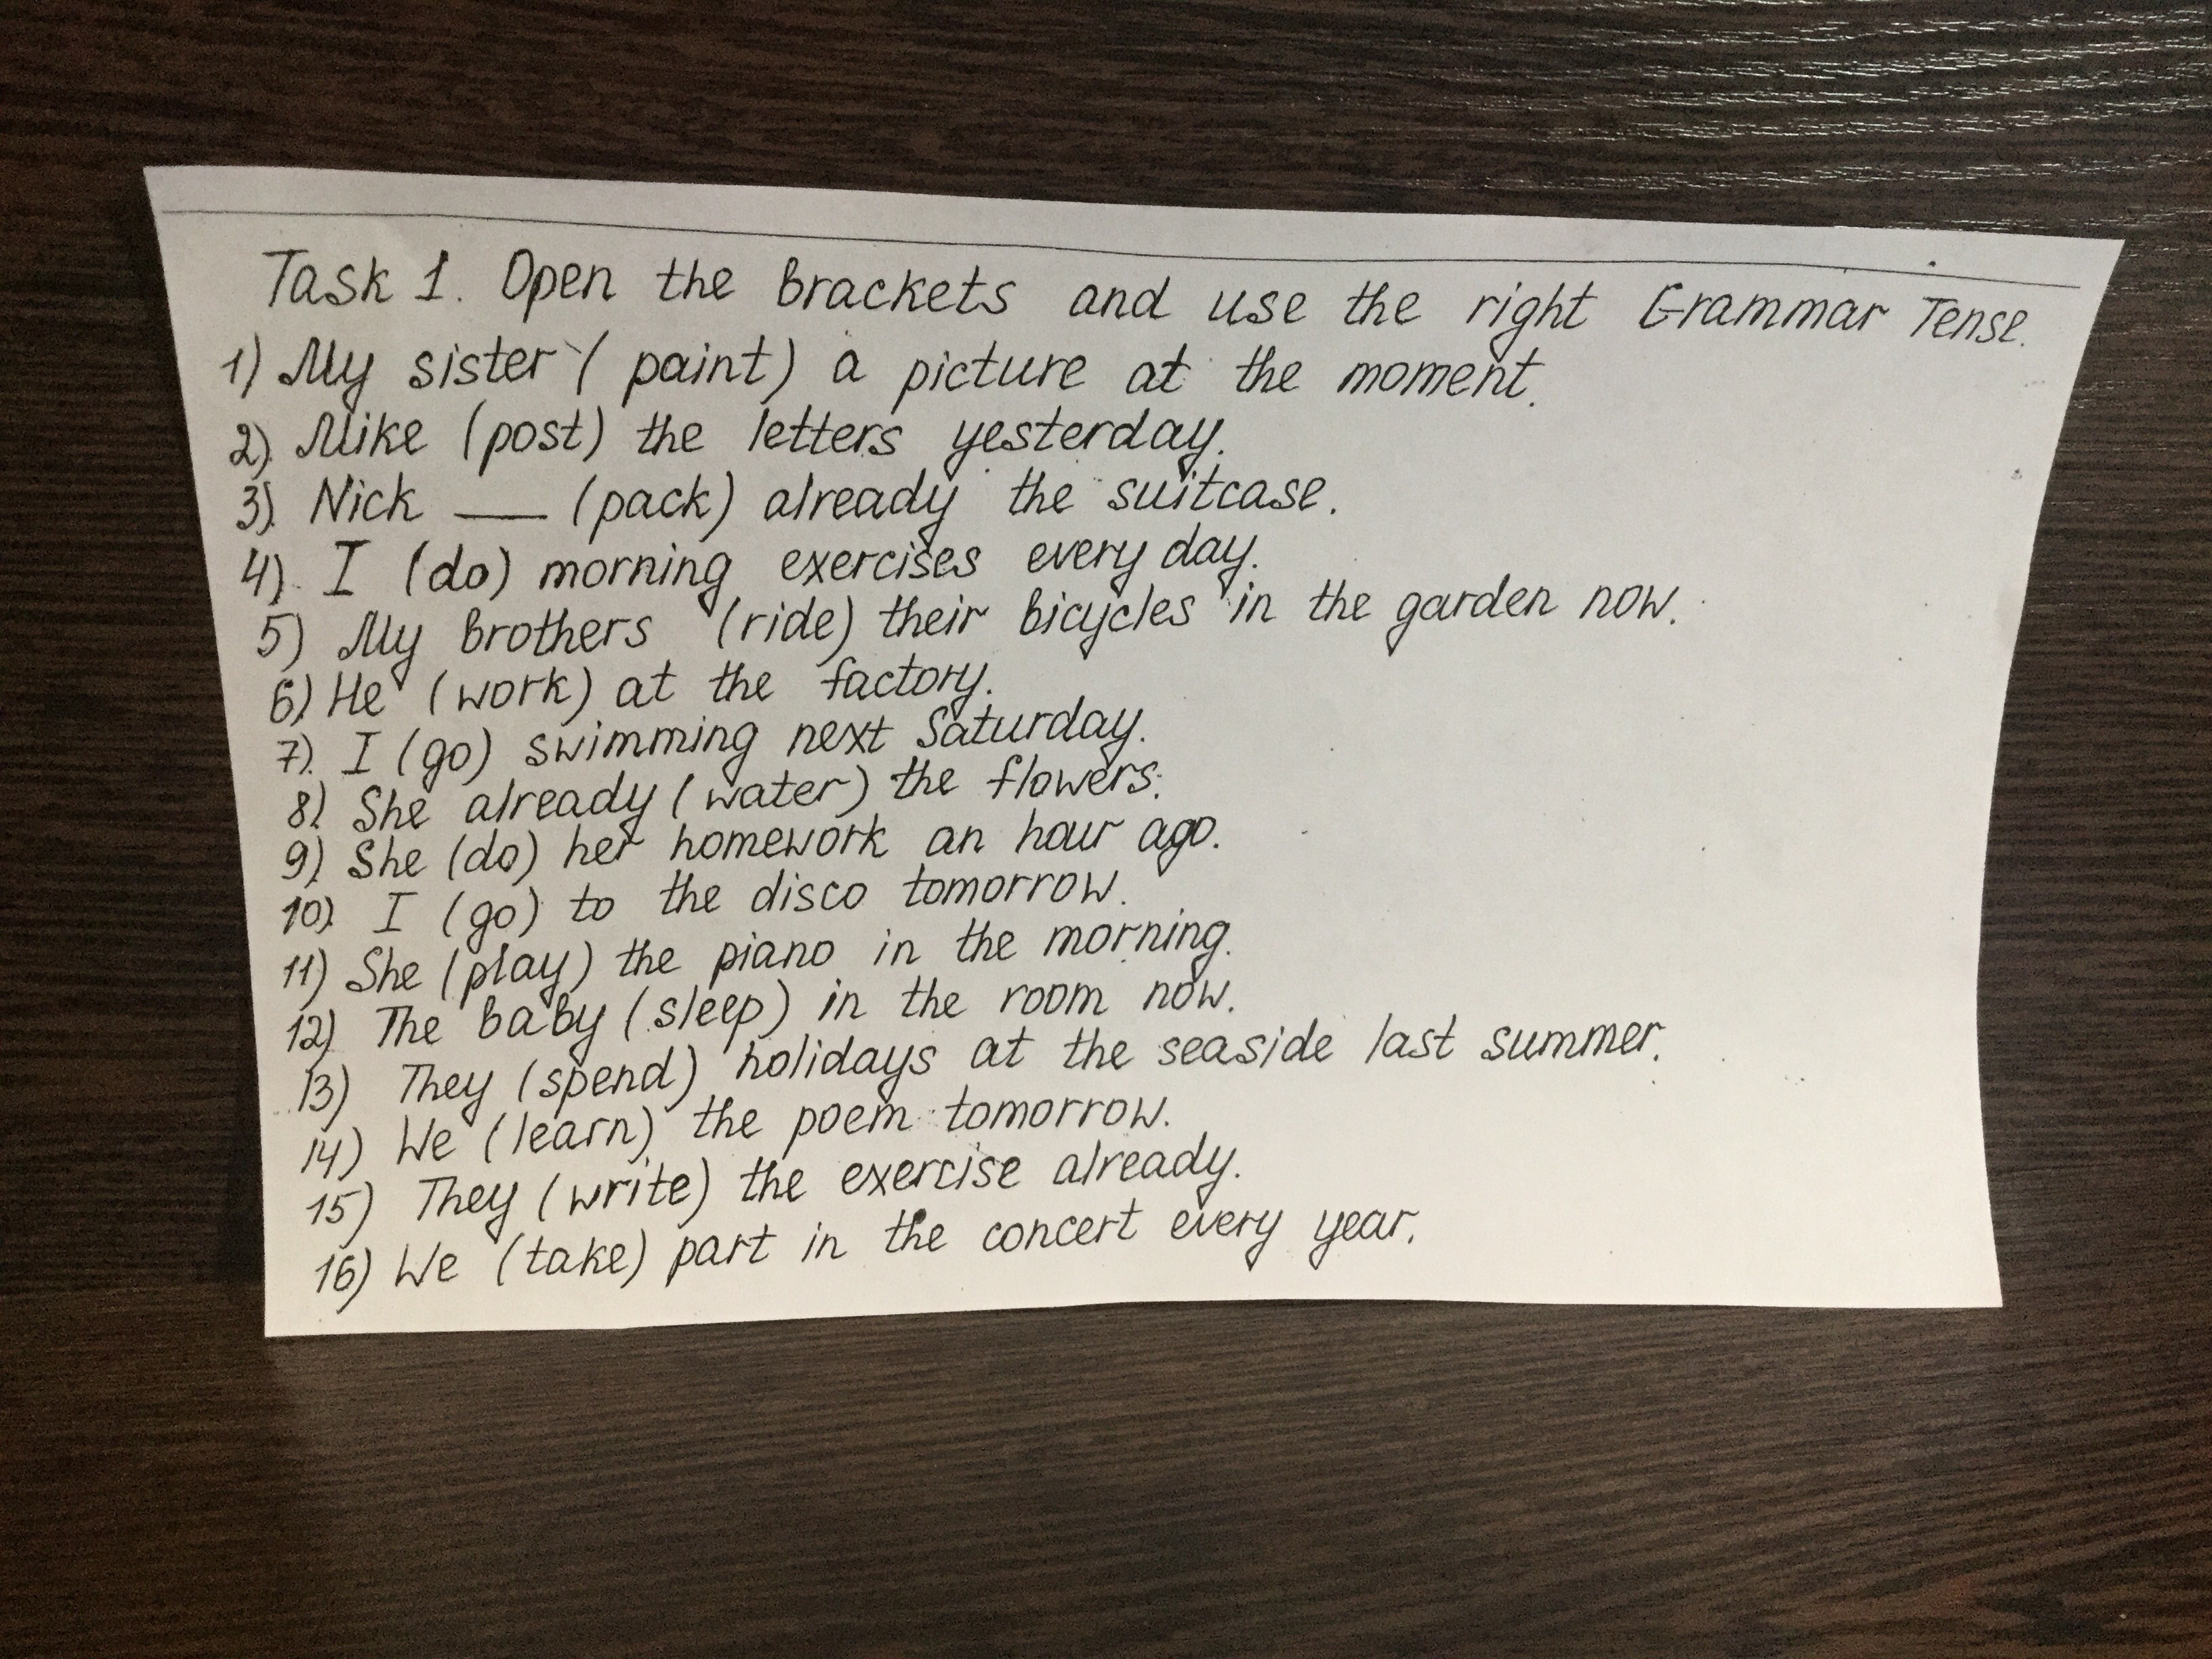 Task 1. Open the brackets and use the right Grammar Tense.
1) My sister (paint) a picture at the moment.
2) Mike (post) the letters yesterday.
3) Nick ___ (pack) already the suitcase.
4) I (do) morning exercises every day.
5) My brothers (ride) their bicycles in the garden now.
6) He (work) at the factory.
7) I (go) swimming next Saturday.
8) She already (water) the flowers.
9) She (do) her homework an hour ago.
10) I (go) to the disco tomorrow.
11) She (play) the piano in the morning.
12) The baby (sleep) in the room now.
13) They (spend) holidays at the seaside last summer.
14) We (learn) the poem tomorrow.
15) They (write) the exercise already.
16) We (take) part in the concert every year.